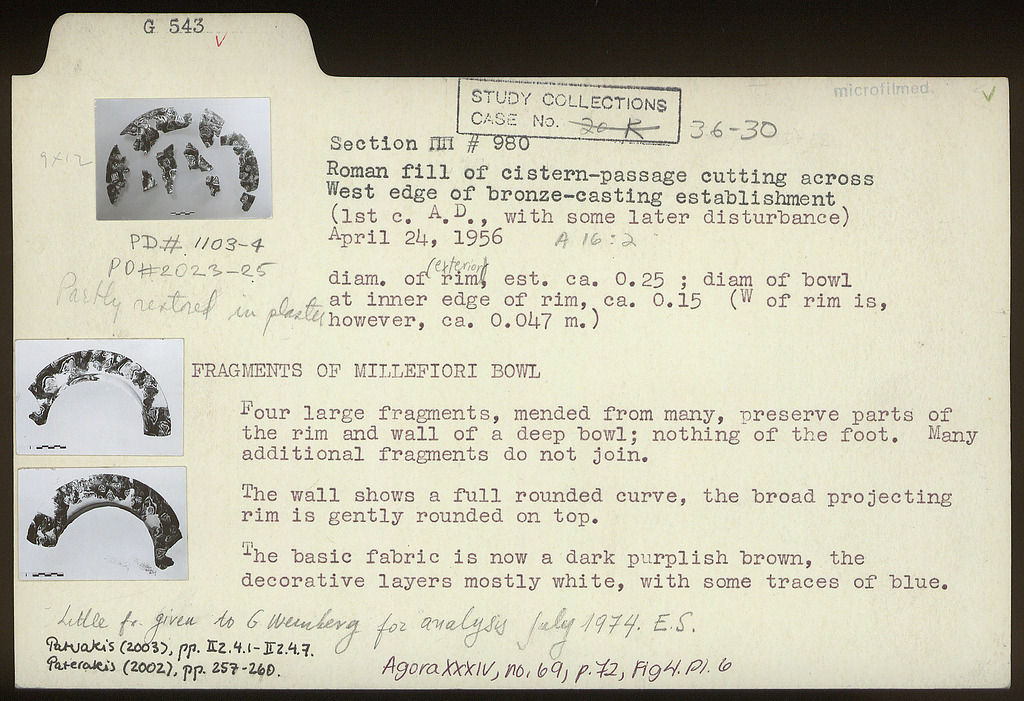 G 543
STUDY COLLECTIONS
CASE No. 20 K 36-30
microfilmed
9x12
Section ΠΠ # 980
Roman fill of cistern-passage cutting across
West edge of bronze-casting establishment
(1st c. A.D., with some later disturbance)
April 24, 1956 A 16:2
PD# 1103-4
PD#2023-25
Partly restored in plaster
diam. of rim, (exterior) est. ca. 0.25 ; diam of bowl
at inner edge of rim, ca. 0.15 (W of rim is,
however, ca. 0.047 m.)
FRAGMENTS OF MILLEFIORI BOWL
Four large fragments, mended from many, preserve parts of
the rim and wall of a deep bowl; nothing of the foot. Many
additional fragments do not join.
The wall shows a full rounded curve, the broad projecting
rim is gently rounded on top.
The basic fabric is now a dark purplish brown, the
decorative layers mostly white, with some traces of blue.
Little fr. given to G Weinberg for analysis July 1974. E.S.
(2003), pp. II2.4.1-II2.4.7.
Paterakis (2002), pp. 257-260.
Agora XXXIV, no. 69, p. 72, Fig 4. Pl. 6